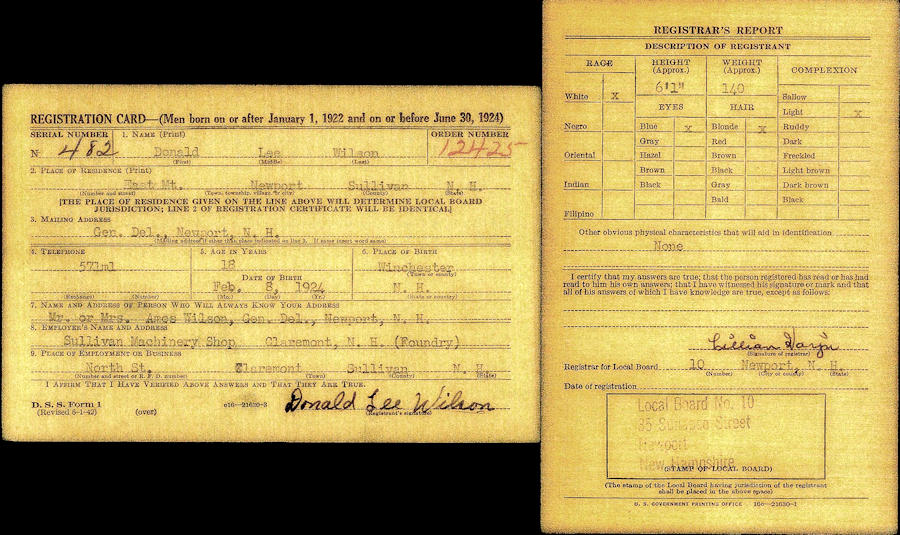 REGISTRATION CARD—(Men born on or after January 1, 1922 and on or before June 30, 1924)
SERIAL NUMBER 1. NAME (Print) ORDER NUMBER
N 482 Donald Lee Wilson 12425
(First) (Middle) (Last)
2. PLACE OF RESIDENCE (Print)
East Mt. Newport Sullivan N. H.
(Number and street) (Town, township, village, or city) (County) (State)
[THE PLACE OF RESIDENCE GIVEN ON THE LINE ABOVE WILL DETERMINE LOCAL BOARD
JURISDICTION; LINE 2 OF REGISTRATION CERTIFICATE WILL BE IDENTICAL]
3. MAILING ADDRESS
Gen. Del., Newport, N. H.
[Mailing address if other than place indicated on line 2. If same insert word same]
4. TELEPHONE 5. AGE IN YEARS 6. PLACE OF BIRTH
571ml 18 Winchester
(Town or county)
DATE OF BIRTH
Feb. 8, 1924 N. H.
(Exchange) (Number) (Mo.) (Day) (Yr.) (State or country)
7. NAME AND ADDRESS OF PERSON WHO WILL ALWAYS KNOW YOUR ADDRESS
Mr. or Mrs. Amos Wilson, Gen. Del., Newport, N. H.
8. EMPLOYER'S NAME AND ADDRESS
Sullivan Machinery Shop Claremont, N. H. (Foundry)
9. PLACE OF EMPLOYMENT OR BUSINESS
North St. Claremont Sullivan N. H.
(Number and street or R. F. D. number) (Town) (County) (State)
I AFFIRM THAT I HAVE VERIFIED ABOVE ANSWERS AND THAT THEY ARE TRUE.
D. S. S. Form 1
(Revised 6-1-42) (over) 16—21630-3 Donald Lee Wilson
(Registrant's signature)
REGISTRAR'S REPORT
DESCRIPTION OF REGISTRANT
RACE HEIGHT (Approx.) WEIGHT (Approx.) COMPLEXION
6'1" 140
White X Sallow
EYES HAIR Light X
Negro Blue X Blonde X Ruddy
Gray Red Dark
Oriental Hazel Brown Freckled
Brown Black Light brown
Indian Black Gray Dark brown
Bald Black
Filipino
Other obvious physical characteristics that will aid in identification
None
I certify that my answers are true; that the person registered has read or has had
read to him his own answers; that I have witnessed his signature or mark and that
all of his answers of which I have knowledge are true, except as follows:
Lillian
(Signature of registrar)
Registrar for Local Board 10 Newport, N. H.
(Number) (City or county) (State)
Date of registration
Local Board No. 10
35 Sunapee Street
Newport
New Hampshire
(STAMP OF LOCAL BOARD)
(The stamp of the Local Board having jurisdiction of the registrant
shall be placed in the above space)
U. S. GOVERNMENT PRINTING OFFICE 16—21630-1